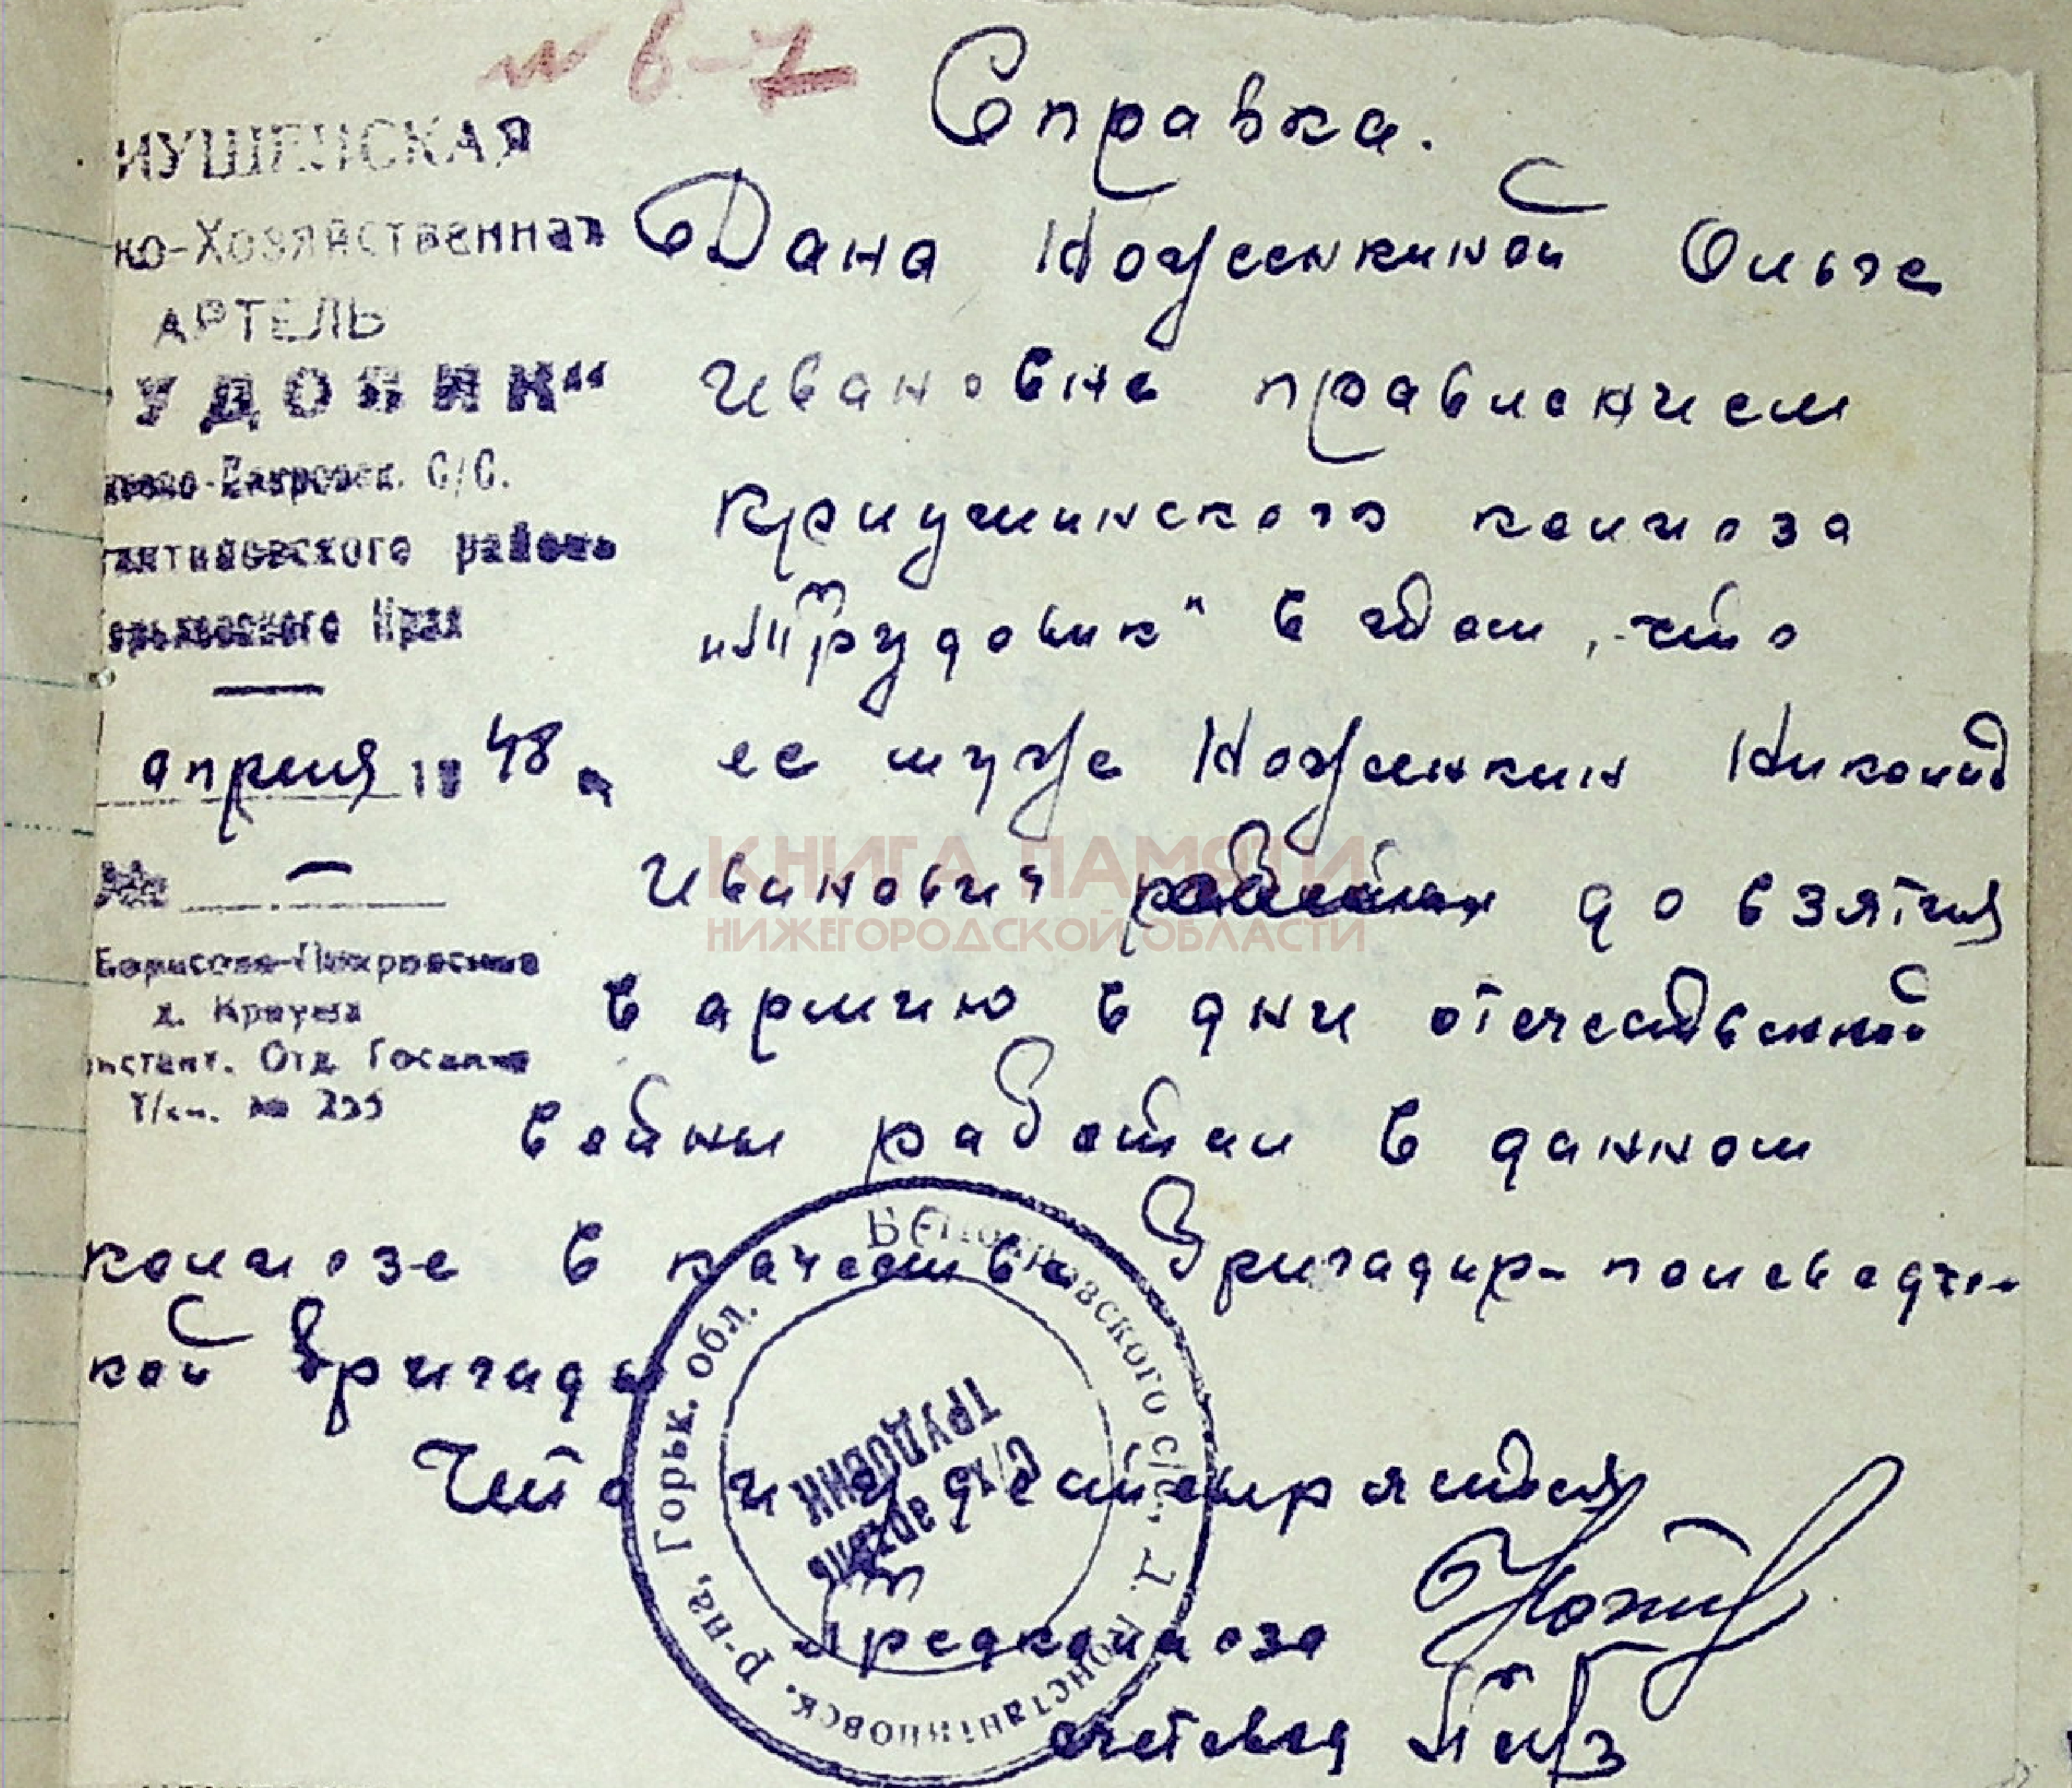 № 6-7
Справка.
ИУШЕНСКАЯ
ко-Хозяйственная
АРТЕЛЬ
УДОВИК“
Покровск. С/С.
тантиновского района
орьковского Края
апреля 1948
№
Борисово-Покровское
д. Криуша
онстант. Отд. Госбанка
Т/сч. № 235
Дана Ноженкиной Ольге
Ивановне правлением
Криушинского колхоза
„Трудовик" в том, что
ее муж Ноженкин Николай
Иванович до взятия
в армию в дни отечественной
войны работал в данном
колхозе в качестве бригадир-полеводче-
кой бригады
Что и удостоверяется
Предколхоза
счетовод
Б-Покровского с/с., д. Константиновск. р-на, Горьк. обл.
С/х артель
ТРУДОВИК
КНИГА ПАМЯТИ
НИЖЕГОРОДСКОЙ ОБЛАСТИ